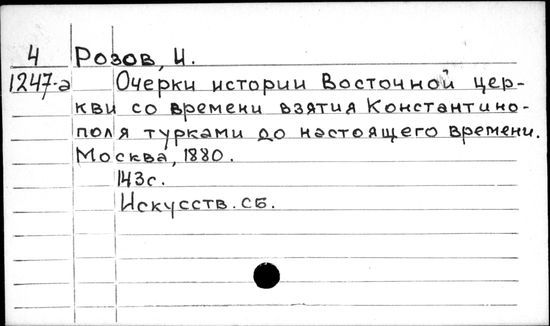 4 Розов, И.
1247-а Очерки истории Восточной цер-
кви со времени взятия Константино-
поля турками до настоящего времени.
Москва, 1880.
143с.
Искусств. сб.